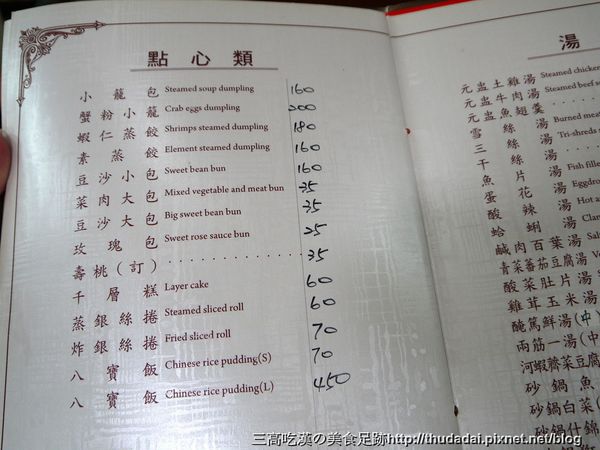 點心類
小籠包 Steamed soup dumpling 160
蟹粉小籠 Crab eggs dumpling 200
蝦仁蒸餃 Shrimps steamed dumpling 180
素蒸餃 Element steamed dumpling 160
豆沙小包 Sweet bean bun 160
菜肉大包 Mixed vegetable and meat bun 35
豆沙大包 Big sweet bean bun 35
玫瑰包 Sweet rose sauce bun 25
壽桃(訂) 35
千層糕 Layer cake 60
蒸銀絲捲 Steamed sliced roll 60
炸銀絲捲 Fried sliced roll 70
八寶飯 Chinese rice pudding(S) 70
八寶飯 Chinese rice pudding(L) 450
湯
元盅土雞湯 Steamed chicken
元盅牛肉湯 Steamed beef
元盅魚翅羹
雪絲湯 Burned meat
三絲湯 Tri-shreds
干絲湯
魚片湯 Fish fille
蛋花湯 Eggdro
酸辣湯 Hot a
蛤蜊湯 Clam
鹹肉百葉湯 Sal
青菜蕃茄豆腐湯 Ve
酸菜肚片湯
雞茸玉米湯
醃篤鮮湯(中)
兩筋一湯(中
河蝦薺菜豆腐
砂鍋魚
砂鍋白菜(
砂鍋什錦
三高吃漢の美食足跡http://thudadai.pixnet.net/blog